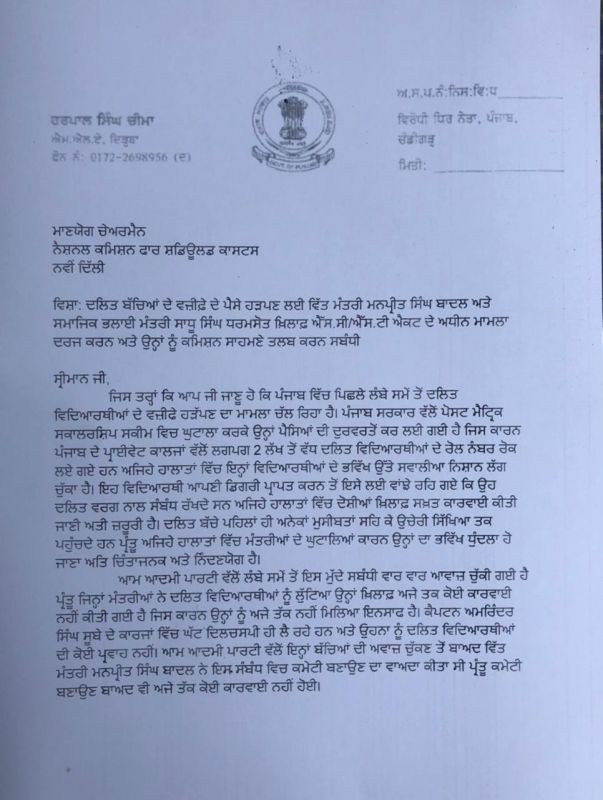 ਅ.ਸ.ਪ.ਨੰ:ਨਿਸ:ਵਿ:ਧ
ਹਰਪਾਲ ਸਿੰਘ ਚੀਮਾ
ਐਮ.ਐਲ.ਏ, ਦਿੜ੍ਹਬਾ
ਫੋਨ ਨੰ: 0172-2698956 (ਦ)
ਵਿਰੋਧੀ ਧਿਰ ਨੇਤਾ, ਪੰਜਾਬ,
ਚੰਡੀਗੜ੍ਹ
ਮਿਤੀ:
GOVT. OF PUNJAB
ਮਾਣਯੋਗ ਚੇਅਰਮੈਨ
ਨੈਸ਼ਨਲ ਕਮਿਸ਼ਨ ਫਾਰ ਸ਼ਡਿਊਲਡ ਕਾਸਟਸ
ਨਵੀਂ ਦਿੱਲੀ
ਵਿਸ਼ਾ: ਦਲਿਤ ਬੱਚਿਆਂ ਦੇ ਵਜ਼ੀਫ਼ੇ ਦੇ ਪੈਸੇ ਹੜਪਣ ਲਈ ਵਿੱਤ ਮੰਤਰੀ ਮਨਪ੍ਰੀਤ ਸਿੰਘ ਬਾਦਲ ਅਤੇ
ਸਮਾਜਿਕ ਭਲਾਈ ਮੰਤਰੀ ਸਾਧੂ ਸਿੰਘ ਧਰਮਸੋਤ ਖ਼ਿਲਾਫ਼ ਐੱਸ.ਸੀ/ਐੱਸ.ਟੀ ਐਕਟ ਦੇ ਅਧੀਨ ਮਾਮਲਾ
ਦਰਜ ਕਰਨ ਅਤੇ ਉਨ੍ਹਾਂ ਨੂੰ ਕਮਿਸ਼ਨ ਸਾਹਮਣੇ ਤਲਬ ਕਰਨ ਸਬੰਧੀ
ਸ੍ਰੀਮਾਨ ਜੀ,
ਜਿਸ ਤਰ੍ਹਾਂ ਕਿ ਆਪ ਜੀ ਜਾਣੂ ਹੋ ਕਿ ਪੰਜਾਬ ਵਿੱਚ ਪਿਛਲੇ ਲੰਬੇ ਸਮੇਂ ਤੋਂ ਦਲਿਤ
ਵਿਦਿਆਰਥੀਆਂ ਦੇ ਵਜ਼ੀਫੇ ਹੜੱਪਣ ਦਾ ਮਾਮਲਾ ਚੱਲ ਰਿਹਾ ਹੈ। ਪੰਜਾਬ ਸਰਕਾਰ ਵੱਲੋਂ ਪੋਸਟ ਮੈਟ੍ਰਿਕ
ਸਕਾਲਰਸ਼ਿਪ ਸਕੀਮ ਵਿਚ ਘੁਟਾਲਾ ਕਰਕੇ ਉਨ੍ਹਾਂ ਪੈਸਿਆਂ ਦੀ ਦੁਰਵਰਤੋਂ ਕਰ ਲਈ ਗਈ ਹੈ ਜਿਸ ਕਾਰਨ
ਪੰਜਾਬ ਦੇ ਪ੍ਰਾਈਵੇਟ ਕਾਲਜਾਂ ਵੱਲੋਂ ਲਗਪਗ 2 ਲੱਖ ਤੋਂ ਵੱਧ ਦਲਿਤ ਵਿਦਿਆਰਥੀਆਂ ਦੇ ਰੋਲ ਨੰਬਰ ਰੋਕ
ਲਏ ਗਏ ਹਨ ਅਜਿਹੇ ਹਾਲਾਤਾਂ ਵਿੱਚ ਇਨ੍ਹਾਂ ਵਿਦਿਆਰਥੀਆਂ ਦੇ ਭਵਿੱਖ ਉੱਤੇ ਸਵਾਲੀਆ ਨਿਸ਼ਾਨ ਲੱਗ
ਚੁੱਕਾ ਹੈ। ਇਹ ਵਿਦਿਆਰਥੀ ਆਪਣੀ ਡਿਗਰੀ ਪ੍ਰਾਪਤ ਕਰਨ ਤੋਂ ਇਸੇ ਲਈ ਵਾਂਝੇ ਰਹਿ ਗਏ ਕਿ ਉਹ
ਦਲਿਤ ਵਰਗ ਨਾਲ ਸੰਬੰਧ ਰੱਖਦੇ ਸਨ ਅਜਿਹੇ ਹਾਲਾਤਾਂ ਵਿੱਚ ਦੋਸ਼ੀਆਂ ਖ਼ਿਲਾਫ਼ ਸਖ਼ਤ ਕਾਰਵਾਈ ਕੀਤੀ
ਜਾਣੀ ਅਤੀ ਜ਼ਰੂਰੀ ਹੈ। ਦਲਿਤ ਬੱਚੇ ਪਹਿਲਾਂ ਹੀ ਅਨੇਕਾਂ ਮੁਸੀਬਤਾਂ ਸਹਿ ਕੇ ਉਚੇਰੀ ਸਿੱਖਿਆ ਤਕ
ਪਹੁੰਚਦੇ ਹਨ ਪ੍ਰੰਤੂ ਅਜਿਹੇ ਹਾਲਾਤਾਂ ਵਿੱਚ ਮੰਤਰੀਆਂ ਦੇ ਘੁਟਾਲਿਆਂ ਕਾਰਨ ਉਨ੍ਹਾਂ ਦਾ ਭਵਿੱਖ ਧੁੰਦਲਾ ਹੋ
ਜਾਣਾ ਅਤਿ ਚਿੰਤਾਜਨਕ ਅਤੇ ਨਿੰਦਣਯੋਗ ਹੈ।
ਆਮ ਆਦਮੀ ਪਾਰਟੀ ਵੱਲੋਂ ਲੰਬੇ ਸਮੇਂ ਤੋਂ ਇਸ ਮੁੱਦੇ ਸਬੰਧੀ ਵਾਰ ਵਾਰ ਆਵਾਜ਼ ਚੁੱਕੀ ਗਈ ਹੈ
ਪ੍ਰੰਤੂ ਜਿਨ੍ਹਾਂ ਮੰਤਰੀਆਂ ਨੇ ਦਲਿਤ ਵਿਦਿਆਰਥੀਆਂ ਨੂੰ ਲੁੱਟਿਆ ਉਨ੍ਹਾਂ ਖ਼ਿਲਾਫ਼ ਅਜੇ ਤਕ ਕੋਈ ਕਾਰਵਾਈ
ਨਹੀਂ ਕੀਤੀ ਗਈ ਹੈ ਜਿਸ ਕਾਰਨ ਉਨ੍ਹਾਂ ਨੂੰ ਅਜੇ ਤਕ ਨਹੀਂ ਮਿਲਿਆ ਇਨਸਾਫ ਹੈ। ਕੈਪਟਨ ਅਮਰਿੰਦਰ
ਸਿੰਘ ਸੂਬੇ ਦੇ ਕਾਰਜਾਂ ਵਿੱਚ ਘੱਟ ਦਿਲਚਸਪੀ ਹੀ ਲੈ ਰਹੇ ਹਨ ਅਤੇ ਉਹਨਾ ਨੂੰ ਦਲਿਤ ਵਿਦਿਆਰਥੀਆਂ
ਦੀ ਕੋਈ ਪ੍ਰਵਾਹ ਨਹੀਂ। ਆਮ ਆਦਮੀ ਪਾਰਟੀ ਵੱਲੋਂ ਇਨ੍ਹਾਂ ਬੱਚਿਆਂ ਦੀ ਅਵਾਜ਼ ਚੁੱਕਣ ਤੋਂ ਬਾਅਦ ਵਿੱਤ
ਮੰਤਰੀ ਮਨਪ੍ਰੀਤ ਸਿੰਘ ਬਾਦਲ ਨੇ ਇਸ ਸੰਬੰਧ ਵਿਚ ਕਮੇਟੀ ਬਣਾਉਣ ਦਾ ਵਾਅਦਾ ਕੀਤਾ ਸੀ ਪ੍ਰੰਤੂ ਕਮੇਟੀ
ਬਣਾਉਣ ਬਾਅਦ ਵੀ ਅਜੇ ਤੱਕ ਕੋਈ ਕਾਰਵਾਈ ਨਹੀਂ ਹੋਈ।